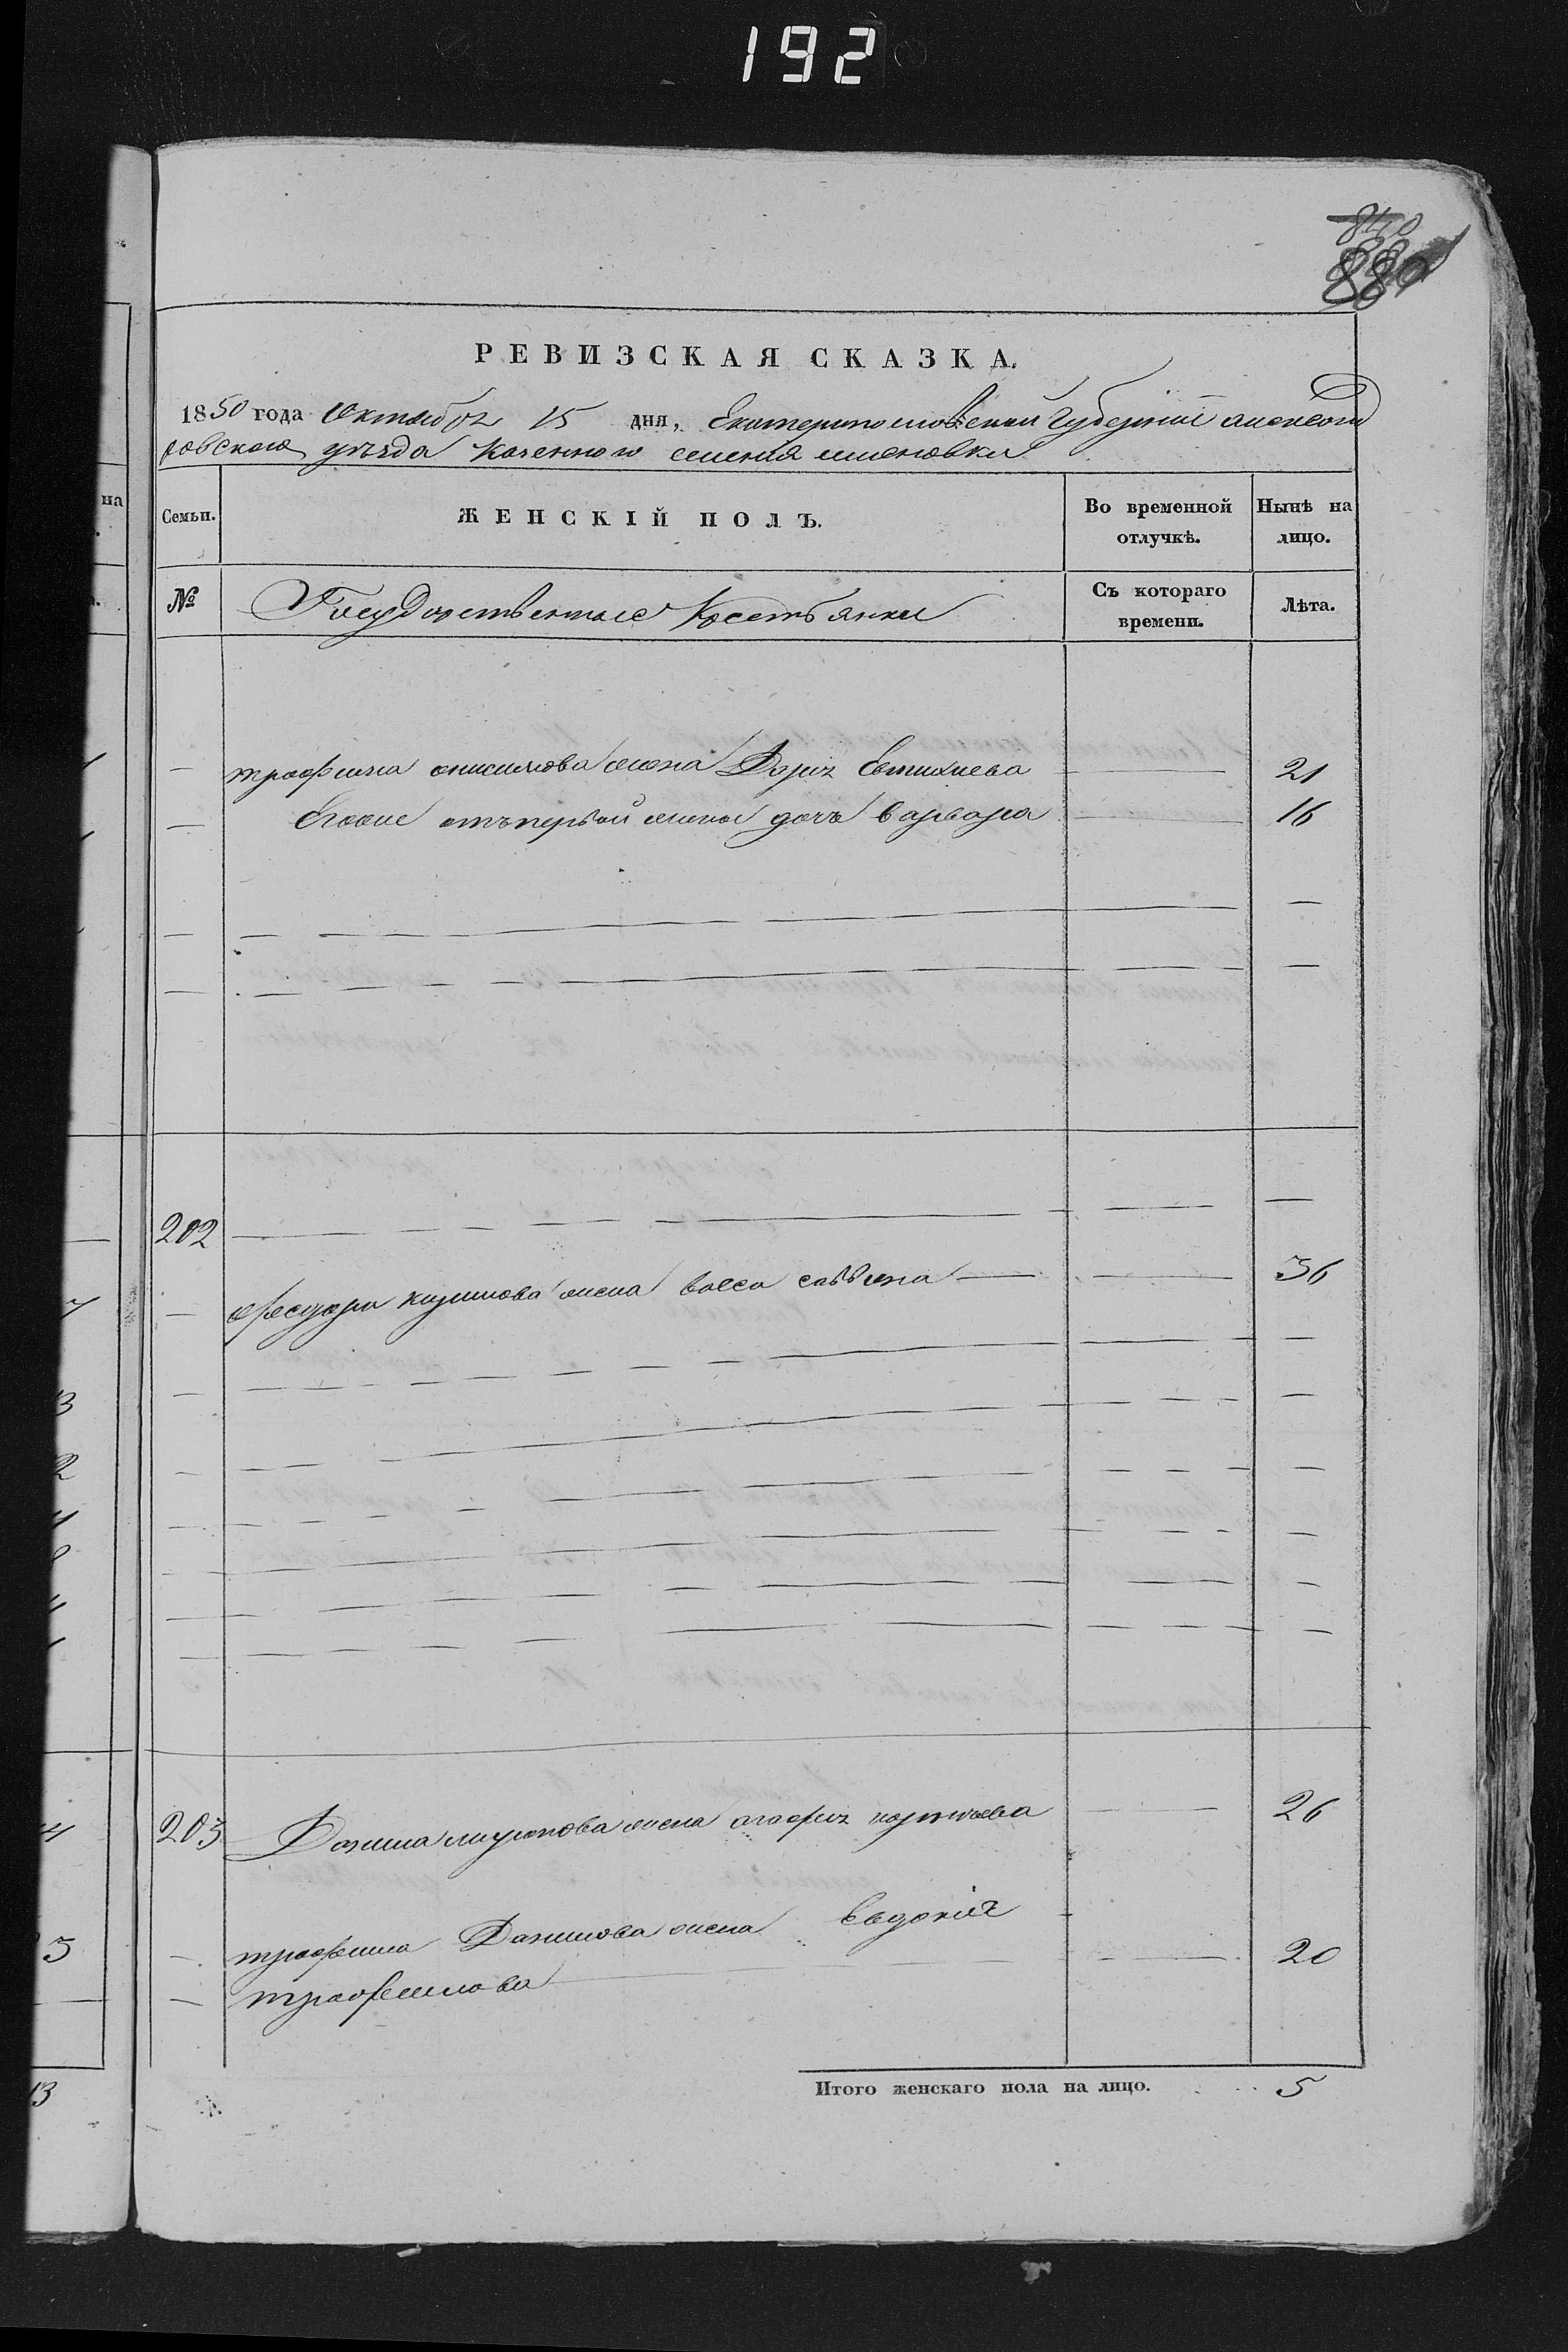 192
840
880
РЕВИЗСКАЯ СКАЗКА.
1850 года Октября 15 дня, Екатеринославской Губернии Александ
ровскаго уезда казенного селения
Семьи. ЖЕНСКІЙ ПОЛЪ. Во временной отлучкѣ. Нынѣ на лицо.
№ Государственные Крестьянки Съ котораго времени. Лѣта.
— трофима онисимова жена Дарья Евтихиева — 21
— Егоже отъ первой жены дочь варвара — 16
202
— федора климова жена васса саввина — 36
203 Данила миронова жена агафия 26
— трофима Данилова жена Евдокия
— трофимова — 20
Итого женскаго пола на лицо. 5